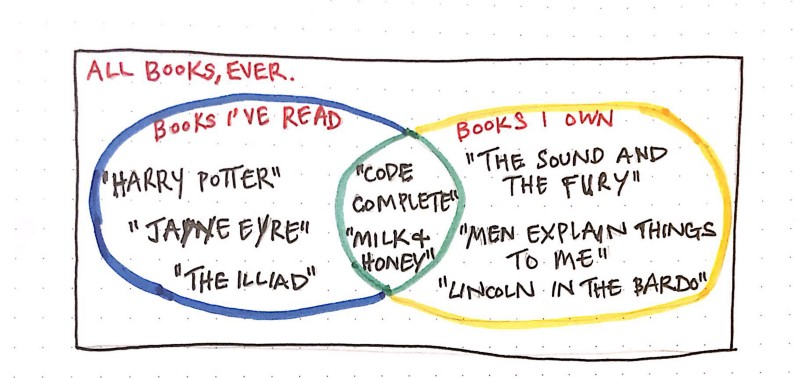 ALL BOOKS, EVER.
BOOKS I'VE READ
"HARRY POTTER"
"JANE EYRE"
"THE ILLIAD"
"CODE
COMPLETE"
"MILK &
HONEY"
BOOKS I OWN
"THE SOUND AND
THE FURY"
"MEN EXPLAIN THINGS
TO ME"
"LINCOLN IN THE BARDO"